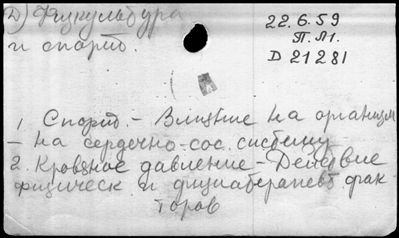 Д) Физкультура
и спорт.
22.6.59
П.Л1.
D 21281
1. Спорт. - Влияние на организм
- на сердечно-сос. систему
2. Кровяное давление - Действие
физическ и физиотерапевт фак
торов